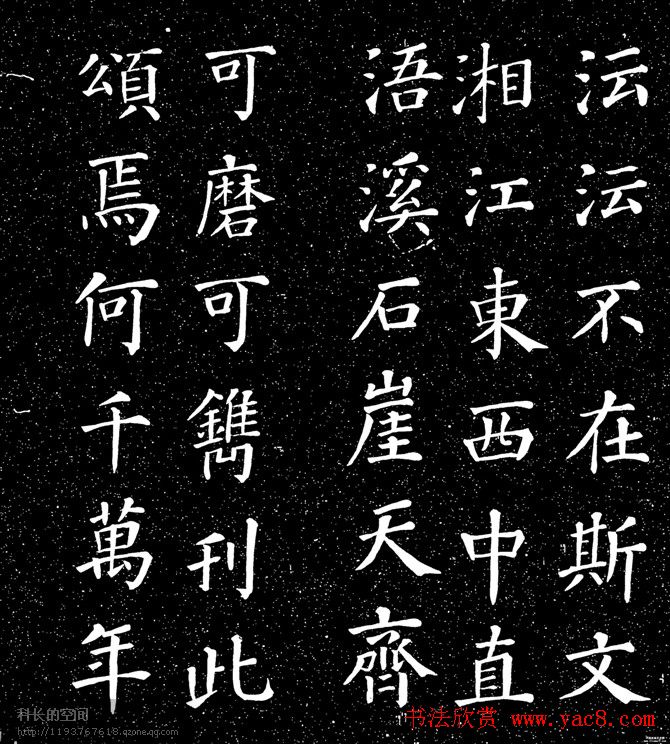 沄沄不在斯文
湘江東西中直
浯溪石崖天齊
可磨可鐫刊此
頌焉何千萬年
科长的空间
http://1193767618.qzone.qq.com
书法欣赏 www.yac8.com